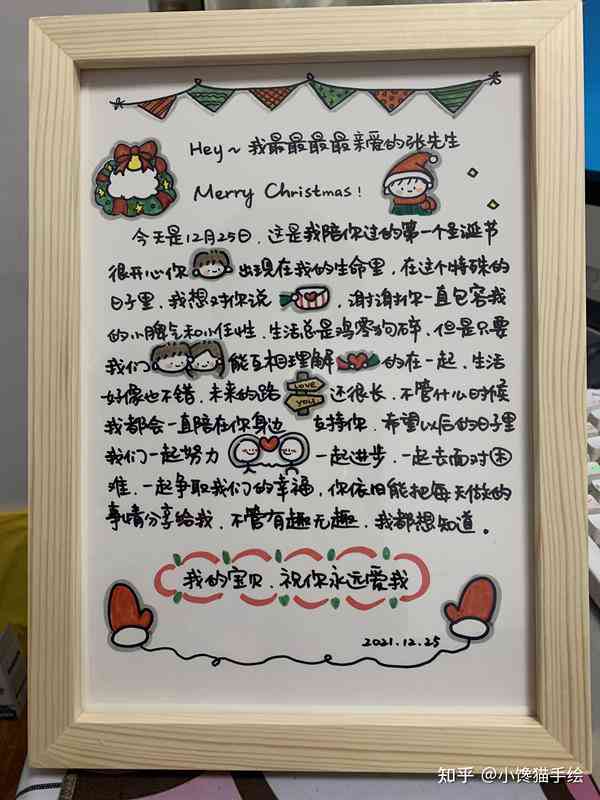 Hey~ 我最最最最亲爱的张先生
Merry Christmas!
今天是12月25日,这是我陪你过的第一个圣诞节
很开心你 出现在我的生命里,在这个特殊的
日子里,我想对你说 ,谢谢你一直包容我
的小脾气和小任性,生活总是鸡零狗碎,但是只要
我们 能互相理解 的在一起,生活
好像也不错,未来的路 LOVE YOU 还很长,不管什么时候
我都会一直陪在你身边 支持你,希望以后的日子里
我们一起努力 一起进步,一起去面对困
难,一起争取我们的幸福,你依旧能把每天做的
事情分享给我,不管有趣无趣,我都想知道。
我的宝贝,祝你永远爱我
2021.12.25
知乎 @小馋猫手绘